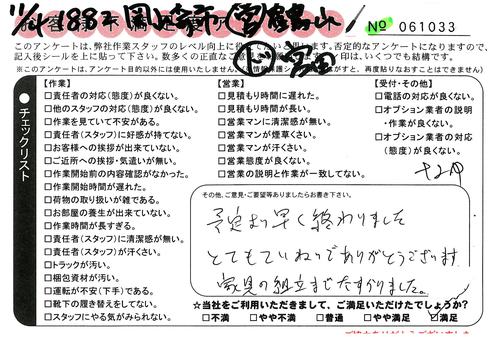 № 061033
このアンケートは、弊社作業スタッフのレベル向上に
記入後シールを上に貼って下さい。
※このアンケートは、アンケート目的以外には使用いたしません。
チェックリスト
【作業】
□責任者の対応(態度)が良くない。
□他のスタッフの対応(態度)が良くない。
□作業を見ていて不安がある。
□責任者(スタッフ)に好感が持てない。
□お客様への挨拶が出来ていない。
□ご近所への挨拶・気遣いが無い。
□作業開始前の内容確認がなかった。
□作業開始時間が遅れた。
□荷物の取り扱いが雑である。
□お部屋の養生が出来ていない。
□作業時間が長すぎる。
□責任者(スタッフ)に清潔感が無い。
□責任者(スタッフ)が汗くさい。
□トラックが汚い。
□梱包資材が汚い。
□運転が不安(下手)である。
□靴下の履き替えをしてない。
□スタッフにやる気がみられない。
【営業】
□見積もり時間に遅れた。
□見積もり時間が長い。
□営業マンに清潔感が無い。
□営業マンが煙草くさい。
□営業マンが汗くさい。
□営業態度が良くない。
□営業の説明と作業が一致してない。
【受付・その他】
□電話の対応が良くない。
□オプション業者の説明
・作業が良くない。
□オプション業者の対応
(態度)が良くない。
その他、ご意見・ご要望等ありましたらお書き下さい。
予定より早く終わりました
とてもていねいでありがとうございます
家具の組立までたすかりました。
☆当社をご利用いただきまして、ご満足いただけたでしょうか?
□不満 □やや不満 □普通 □やや満足 □満足